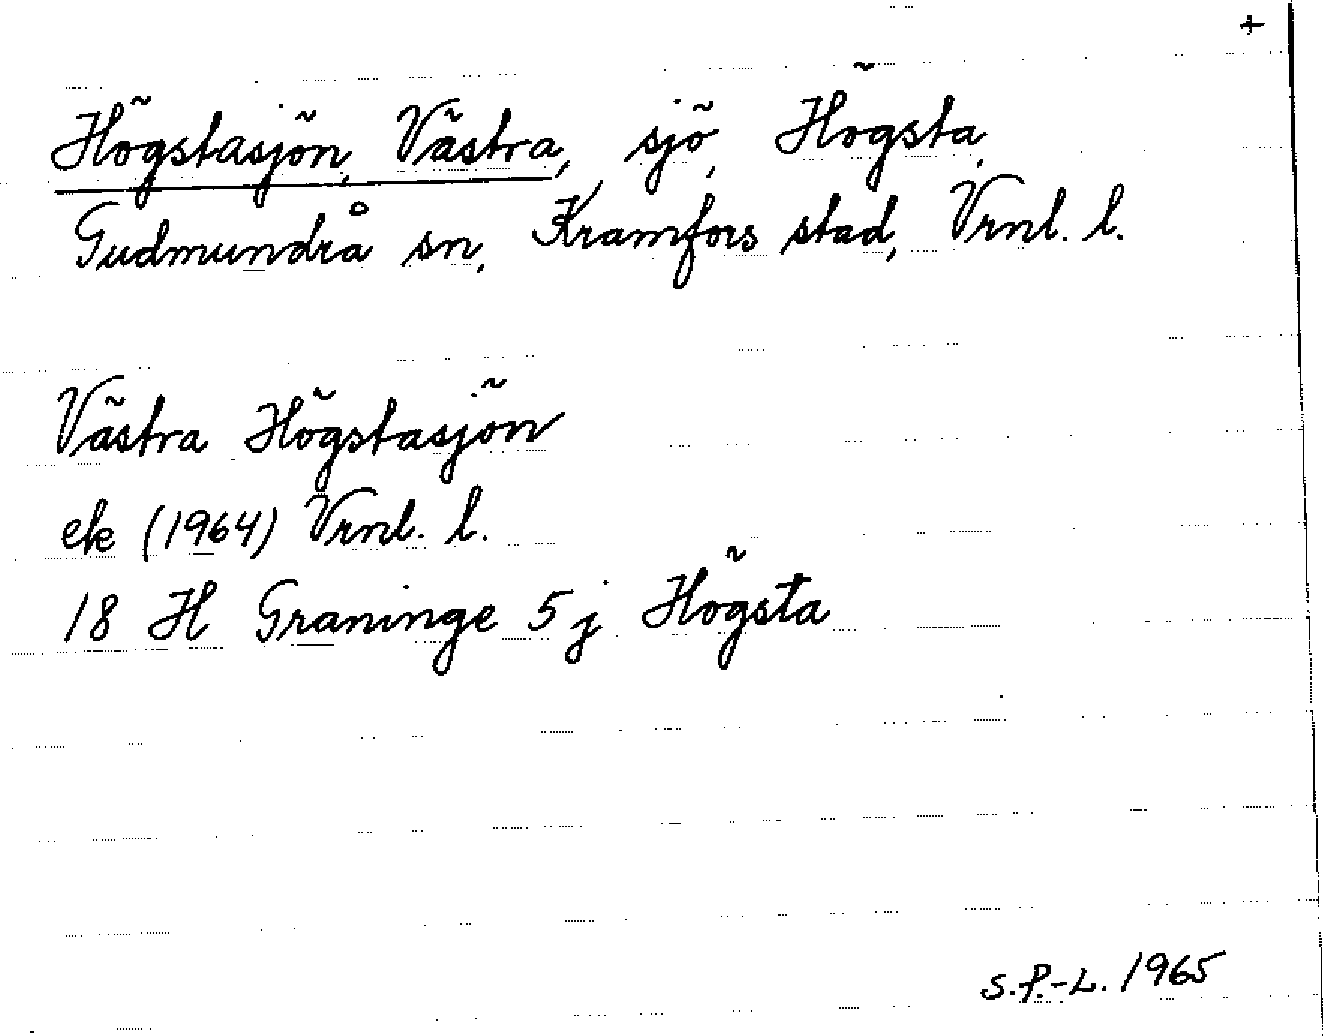 +
Högstasjön, Västra, sjö, Högsta,
Gudmundrå sn, Kramfors stad, Vrnl. l.
Västra Högstasjön
ek (1964) Vrnl. l.
18 H Graninge 5 j Högsta
S.P.-L. 1965